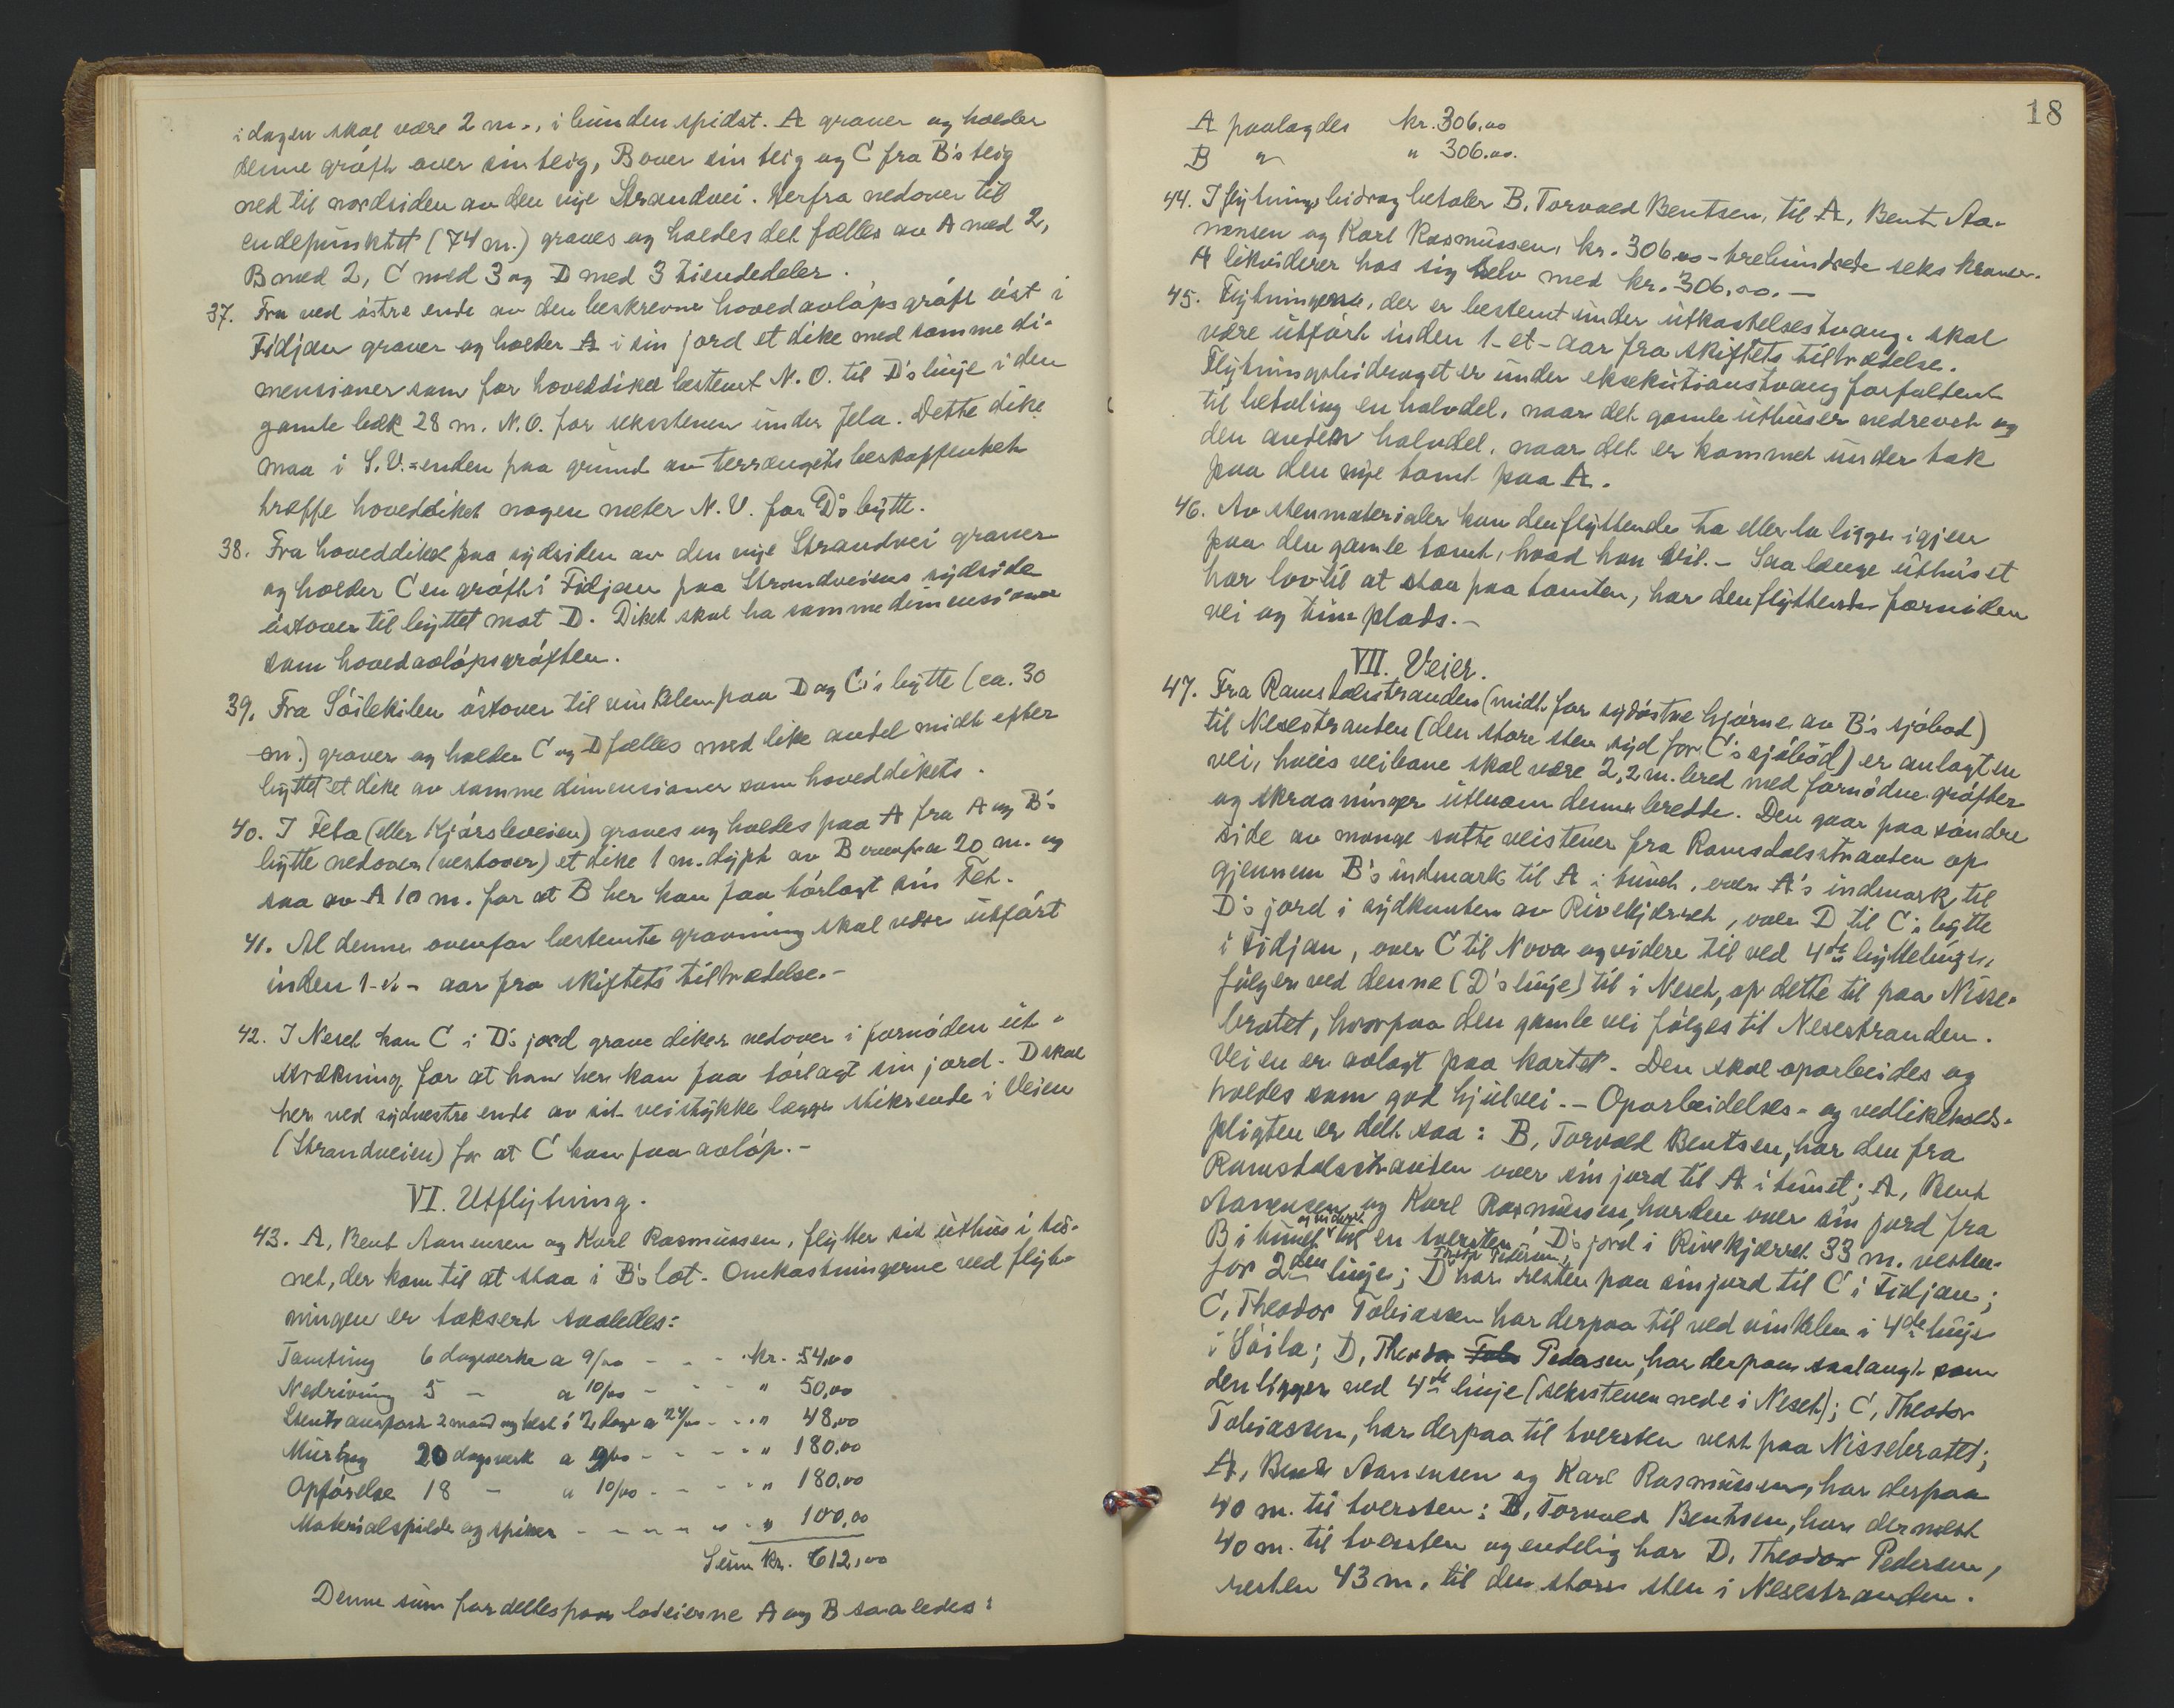 i dagen skal være 2 m., i bunden spidst. A graver og holder
denne gröft over sin teig, B over sin teig og C fra B's teig
ned til nordsiden av den nye Strandvei. Herfra nedover til
endepunktet (74 m.) graves og holdes det fælles av A med 2,
B med 2, C med 3 og D med 3 tiendedeler.
37. Fra ved östre ende av den beskrevne hovedavlöpsgröft öst i
Fidjan graver og holder A i sin jord et dike med samme di-
mensioner som for hoveddiket bestemt N.O. til D's linje i den
gamle bæk 28 m. N.O. for sekstenen under Fela. Dette dike
maa i S.V.=enden paa grund av terrængets beskaffenhet
træffe hoveddiket nogen meter N.V. for D's bytte.
38. Fra hoveddiket paa sydsiden av den nye Strandvei graver
og holder C en gröft i Fidjan paa Strandveiens sydside
östover til byttet mot D. Diket skal ha samme dimensioner
som hovedavlöpsgröften.
39. Fra Söilekilen östover til vinkelen paa D og C's bytte (ca. 30
m.) graver og holder C og D fælles med like andel midt efter
byttet et dike av samme dimensioner som hoveddikets.
40. I Feta (eller Kjörsleveien) graves og holdes paa A fra A og B's
bytte nedover (vestover) et dike 1 m. dypt av B ovenfra 20 m. og
saa av A 10 m. for at B her kan faa törlagt sin Fet.
41. Al denne ovenfor bestemte gravning skal være utfört
inden 1-et- aar fra skiftets tiltrædelse.-
42. I Neset kan C i D's jord grave diker nedover i fornöden ut-
strækning for at han her kan faa törlagt sin jord. D skal
her ved sydvestre ende av sit veistykke lægge stikrende i Veien
(Strandveien) for at C kan faa avlöp.-
VI. Utflytning.
43. A, Bent Aanensen og Karl Rasmussen, flytter sit uthus i tu-
net, der kom til at staa i B's lot. Omkostningerne ved flyt-
ningen er taksert saaledes:
Tomting 6 dagsverke a 9/00 - - - kr. 54,00
Nedrivning 5 - a 10/00 - - - " 50,00
Stentransport 2 mand og hest i 2 dage a 24/00 - - " 48,00
Muring 20 dagsverk a 9/00 - - - - " 180,00
Opförelse 18 - a 10/00 - - - - " 180,00
Materialspilde og spiker - - - - - - " 100,00
Sum kr. 612,00
Denne sum fordeltes paa lodeierne A og B saaledes:
18
A paalagdes kr. 306.00
B " " 306.00.
44. I flytningsbidrag betaler B, Torvald Bentsen, til A, Bent Aa-
nensen og Karl Rasmussen, kr. 306.00 - trehundrede seks kroner.
A likviderer hos sig selv med kr. 306.00.-
45. Flytningerne, der er bestemt under utkastelsestvang, skal
være utfört inden 1-et-aar fra skiftets tiltrædelse.
Flytningsbidraget er under eksekutionstvang forfaldent
til betaling en halvdel, naar det gamle uthus er nedrevet og
den anden halvdel, naar det er kommet under tak
paa den nye tomt paa A.
46. Av stenmaterialer kan den flyttende ta eller la ligge igjen
paa den gamle tomt, hvad han vil. - Saa længe uthuset
har lov til at staa paa tomten, har den flyttende fornöden
vei og tun plads.-
VII. Veier.
47. Fra Ramsdalsstranden (midt for sydöstre hjörne av B's sjöbod)
til Nesestranden (den store sten syd for C's sjöbod) er anlagt en
vei, hvis veibane skal være 2,2 m. bred med fornödne gröfter
og skraaninger utenom denne bredde. Den gaar paa söndre
side av mange satte veistener fra Ramsdalsstranden op
gjennem B's indmark til A i tunet, over A's indmark til
D's jord i sydkanten av Rivekjærret, over D til C's bytte
i Fidjan, over C til Nova og videre til ved 4de byttelinje,
fölger ved denne (D's linje) til i Neset, op dette til paa Nisse-
bratet, hvorpaa den gamle vei fölges til Nesestranden.
Veien er avlagt paa kartet. Den skal oparbeides og
holdes som god hjulvei. - Oparbeidelses- og vedlikeholds-
pligten er delt saa: B, Torvald Bentsen, har den fra
Ramsdalsstranden over sin jord til A i tunet; A, Bent
Aanensen og Karl Rasmussen, har den over sin jord fra
B i tunet og videre til en tversten i D's jord i Rivekjærret 33 m. vesten-
for 2den linje; D Theodor Pedersen, har resten paa sin jord til C i Fidjan;
C, Theodor Tobiassen har derpaa til ved vinkelen i 4de linje
i Söila; D, Theodor Tob Pedersen, har derpaa saalangt som
den ligger ved 4de linje (sekstenen nede i Neset); C, Theodor
Tobiassen, har derpaa til tversten vest paa Nissebratet;
A, Bent Aanensen og Karl Rasmussen, har derpaa
40 m. til tversten; B, Torvald Bentsen, har dernæst
40 m. til tversten og endelig har D, Theodor Pedersen,
resten 43 m. til den store sten i Nesestranden.